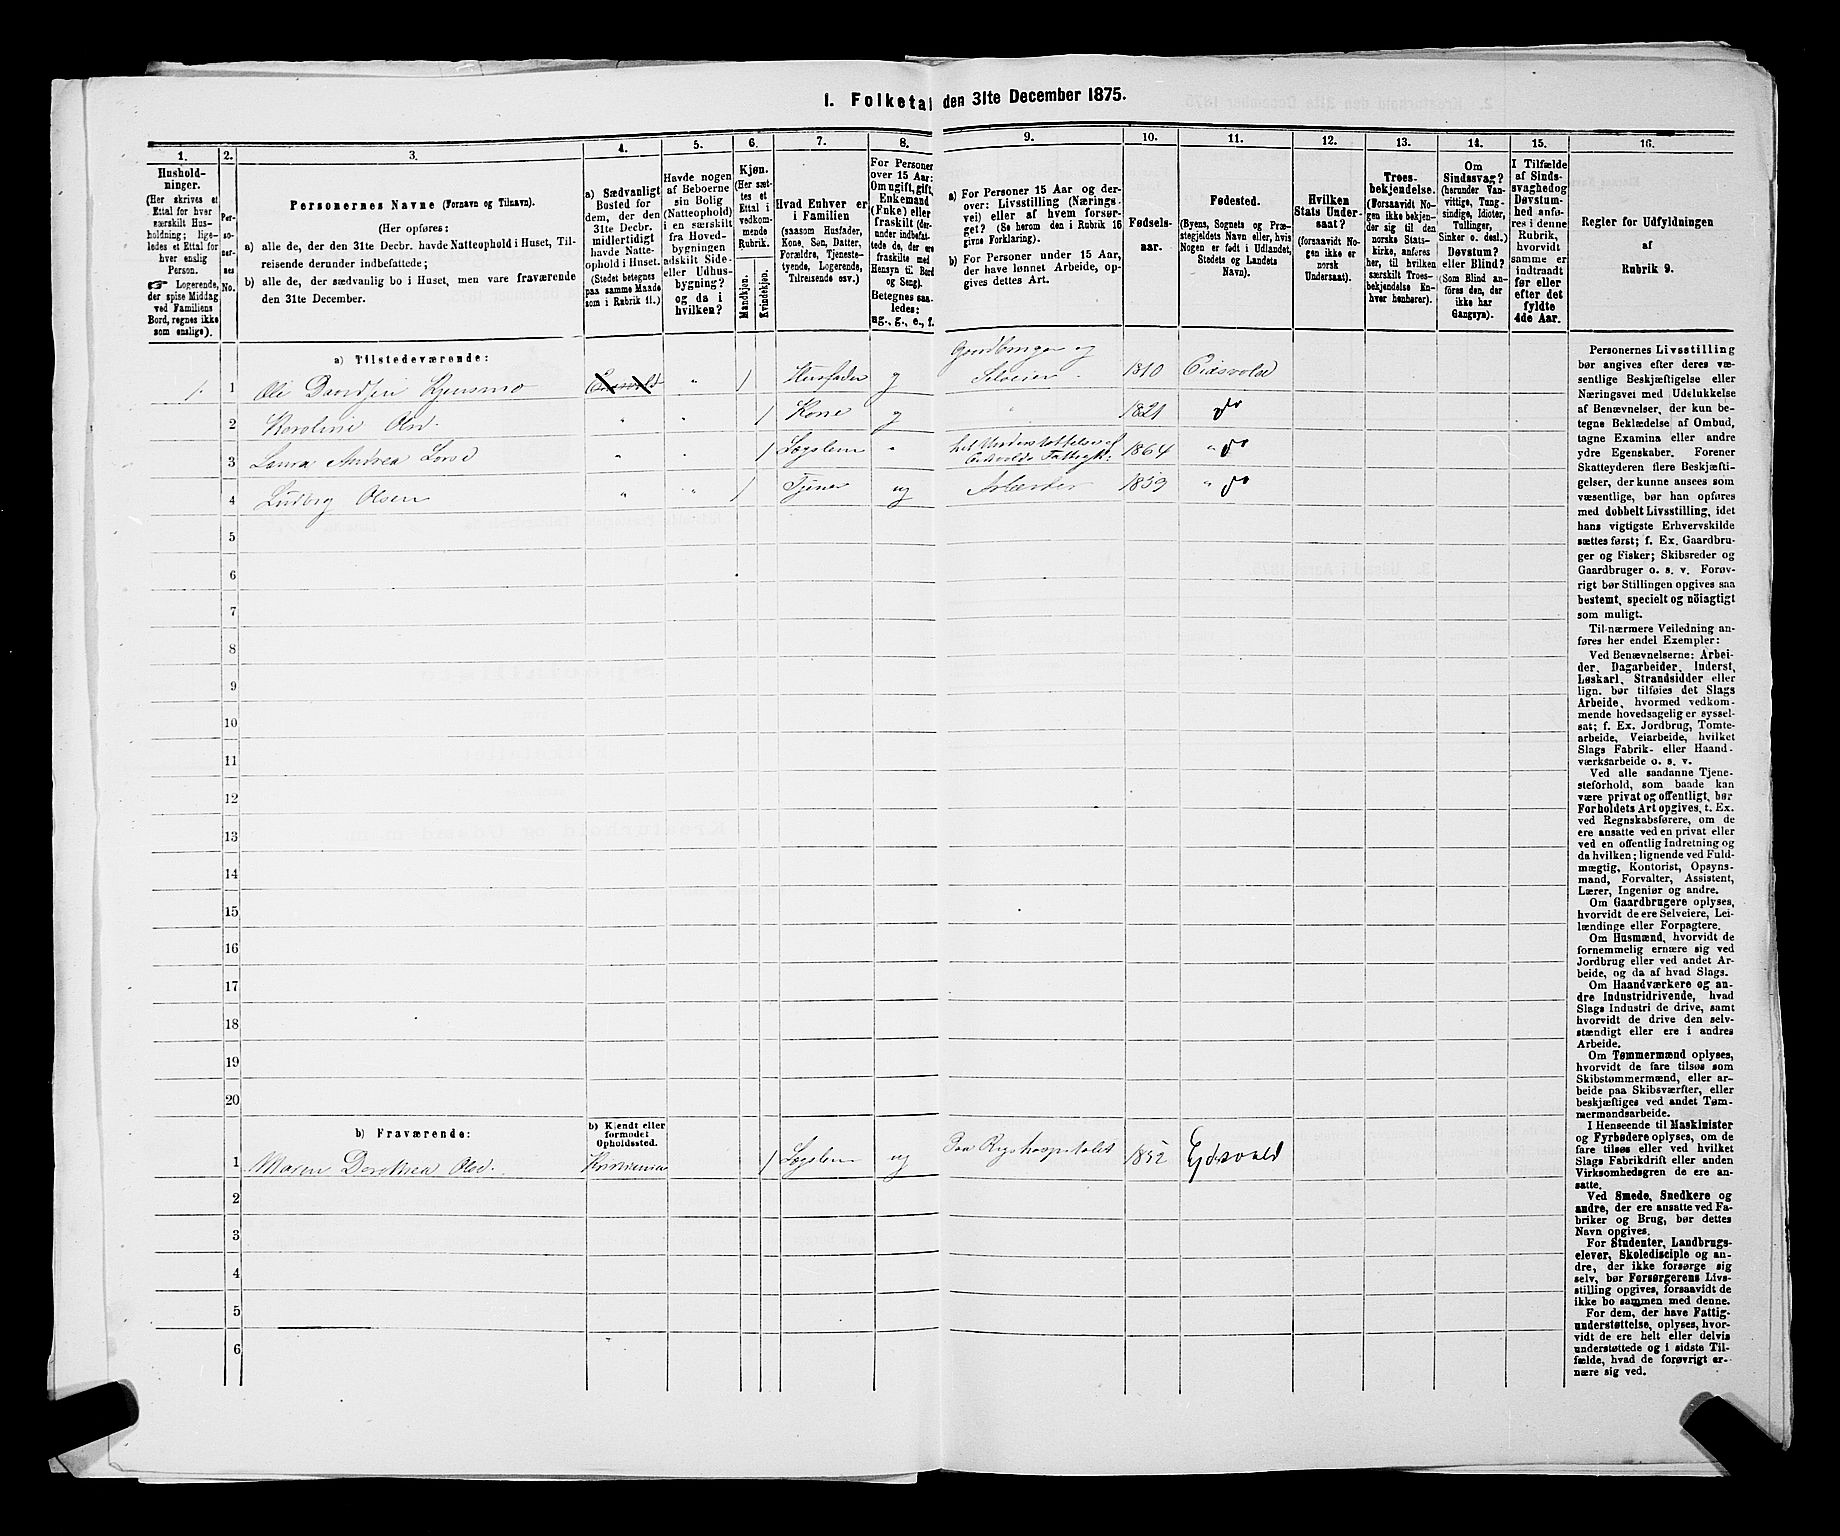 1. Folketal den 31te December 1875.
1.
Hushold-
ninger.
(Her skrives et
Ettal for hver
særskilt Hus-
holdning; lige-
ledes et Ettal for
hver enslig
Person.
☞ Logerende,
der spise Middag
ved Familiens
Bord, regnes ikke
som enslige).
2.
Per-
so-
ner-
nes
No.
3.
Personernes Navne (Fornavn og Tilnavn).
(Her opføres:
a) alle de, der den 31te Decbr. havde Natteophold i Huset, Til-
reisende derunder indbefattede;
b) alle de, der sædvanlig bo i Huset, men vare fraværende
den 31te December.
4.
a) Sædvanligt
Bosted for
dem, der den
31te Decbr.
midlertidigt
havde Natte-
ophold i Huset.
(Stedet betegnes
paa samme Maade
som i Rubrik 11.)
5.
Havde nogen
af Beboerne
sin Bolig
(Natteophold)
i en særskilt
fra Hoved-
bygningen
adskilt Side-
eller Udhus-
bygning?
og da i
hvilken?
6.
Kjøn.
(Her sæt-
tes et
Ettal i
vedkom-
mende
Rubrik.
Mandkjøn.
Kvindekjøn.
7.
Hvad Enhver er
i Familien
(saasom Husfader,
Kone, Søn, Datter,
Forældre, Tjeneste-
tyende, Logerende,
Tilreisende osv.)
8.
For Personer
over 15 Aar:
Om ugift, gift,
Enkemand
(Enke) eller
fraskilt (der-
under indbefat-
tede de, der ere
fraskilte med
Hensyn til Bord
og Seng).
Betegnes saa-
ledes:
ug., g., e., f.
9.
a) For Personer 15 Aar og der-
over: Livsstilling (Nærings-
vei) eller af hvem forsør-
get? (Se herom den i Rubrik 16
givne Forklaring).
b) For Personer under 15 Aar,
der have lønnet Arbeide, op-
gives dettes Art.
10.
Fødsels-
aar.
11.
Fødested.
(Byens, Sognets og Præ-
stegjeldets Navn eller, hvis
Nogen er født i Udlandet,
Stedets og Landets
Navn).
12.
Hvilken
Stats Under-
saat?
(forsaavidt No-
gen ikke er
norsk
Undersaat).
13.
Troes-
bekjendelse.
(Forsaavidt No-
gen ikke bekjen-
der sig til den
norske Stats-
kirke, anføres
her, til hvilken
særskilt Troes-
bekjendelse En-
hver henhører).
14.
Om
Sindssvag?
(herunder Van-
vittige, Tung-
sindige, Idioter,
Tullinger,
Sinker o. desl.)
Døvstum?
eller Blind?
(Som Blind an-
føres den, der
ikke har
Gangsyn).
15.
I Tilfælde
af Sinds-
svaghed og
Døvstum-
hed anfø-
res i denne
Rubrik,
hvorvidt
samme er
indtraadt
før eller
efter det
fyldte
4de Aar.
16.
Regler for Udfyldningen
af
Rubrik 9.
a) Tilstedeværende:
1. 1 Ole Davidsen Kjensmo Eidsvold " 1 Husfader g Gaardbruger og Selveier 1810 Eidsvold
2 Karoline Olsd. " " 1 Kone g " 1821 do
3 Laura Andrea Larsd " " 1 Lægslem " helt Understøttelse af Eidsvolds Fattigk: 1864 " do
4 Ludvig Olsen " " 1 Tjener ug Arbeider 1859 " do
5
6
7
8
9
10
11
12
13
14
15
16
17
18
19
20
b) Fraværende:
b) Kjendt eller
formodet
Opholdssted.
1 Maren Dorothea Olsd. Kristiania 1 Lægslem ug Paa Rigshospitalet 1852 Ejdsvold
2
3
4
5
6
Personernes Livsstilling
bør angives efter deres væ-
sentlige Beskjæftigelse eller
Næringsvei med Udelukkelse
af Benævnelser, der kun be-
tegne Beklædelse af Ombud,
tagne Examina eller andre
ydre Egenskaber. Forener
Skatteyderen flere Beskjæfti-
gelser, der kunne ansees som
væsentlige, bør han opføres
med dobbelt Livsstilling, idet
hans vigtigste Erhvervskilde
sættes først; f. Ex. Gaardbru-
ger og Fisker; Skibsreder og
Gaardbruger o. s. v. Forøv-
rigt bør Stillingen opgives saa
bestemt, specielt og nøiagtigt
som muligt.
Til nærmere Veiledning an-
føres her endel Exempler:
Ved Benævnelserne: Arbei-
der, Dagarbeider, Inderst,
Løskarl, Strandsidder eller
lign. bør tilføies det Slags
Arbeide, hvormed vedkom-
mende hovedsagelig er syssel-
sat; f. Ex. Jordbrug, Tomte-
arbeide, Veiarbeide, hvilket
Slags Fabrik- eller Haand-
værksarbeide o. s. v.
Ved alle saadanne Tjene-
steforhold, som baade kan
være privat og offentligt, bør
Forholdets Art opgives, t. Ex.
ved Regnskabsførere, om de
ere ansatte ved en privat eller
ved en offentlig Indretning og
da hvilken; lignende ved Fuld-
mægtig, Kontorist, Opsyns-
mand, Forvalter, Assistent,
Lærer, Ingeniør og andre.
Om Gaardbrugere oplyses,
hvorvidt de ere Selveiere, Lei-
lændinge eller Forpagtere.
Om Husmænd, hvorvidt de
fornemmelig ernære sig ved
Jordbrug eller ved andet Ar-
beide, og da af hvad Slags.
Om Haandværkere og an-
dre Industridrivende, hvad
Slags Industri de drive, samt
hvorvidt de drive den selv-
stændigt eller ere i andres
Arbeide.
Om Tømmermænd oplyses,
hvorvidt de fare tilsøs som
Skibstømmermænd, eller ar-
beide paa Skibsværfter, eller
beskjæftiges ved andet Tøm-
mermandsarbeide.
I Henseende til Maskinister
og Fyrbødere oplyses, om de
fare tilsøs eller ved hvilket
Slags Fabrikdrift eller anden
Virksomhedsgren de ere an-
satte.
Ved Smede, Snedkere og
andre, der ere ansatte ved Fa-
briker og Brug, bør dettes
Navn opgives.
For Studenter, Landbrugs-
elever, Skoledisciple og an-
dre, der ikke forsørge sig
selv, bør Forsørgerens Livs-
stilling opgives, forsaavidt de
ikke bo sammen med denne.
For dem, der have Fattig-
understøttelse, oplyses, hvor-
vidt de ere helt eller delvis
understøttede og i sidste Til-
fælde, hvad de forøvrigt er-
nære sig ved.